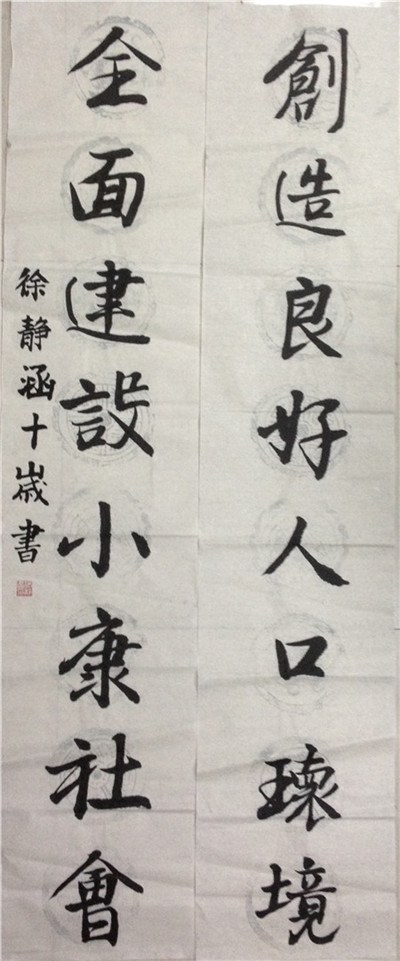 創造良好人口環境
全面建設小康社會
徐靜涵十歲書